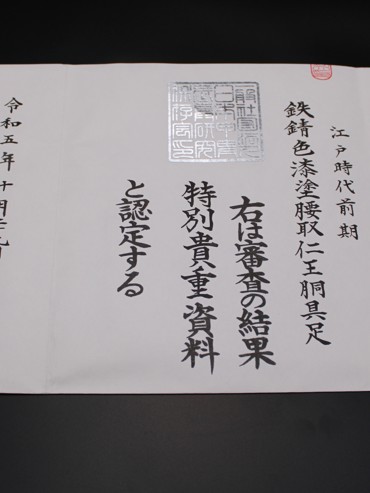 江戸時代前期
鉄錆色漆塗腰取仁王胴具足
右は審査の結果
特別貴重資料
と認定する
令和五年十月